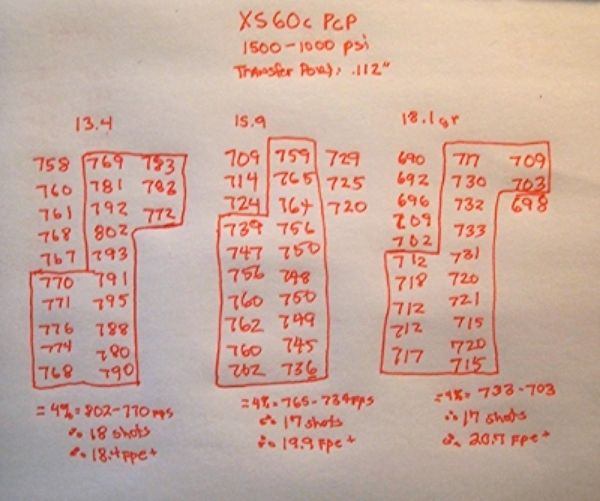 XS60c PCP
1500-1000 psi
Transfer Port: .112"
13.4 15.9 18.1gr
758 769 783 709 759 729 690 717 709
760 781 782 714 765 725 692 730 703
761 792 772 724 764 720 696 732 698
768 802 739 756 709 733
767 793 747 750 702 731
770 791 756 748 712 720
771 795 760 750 718 721
776 788 762 749 712 715
774 780 760 745 712 720
768 790 762 736 717 715
=4%=802-770 FPS =4%=765-734FPS =4%=733-703
∴ 18 shots ∴ 17 shots ∴ 17 shots
∴ 18.4 FPe+ ∴ 19.9 FPe+ ∴ 20.7 FPe+